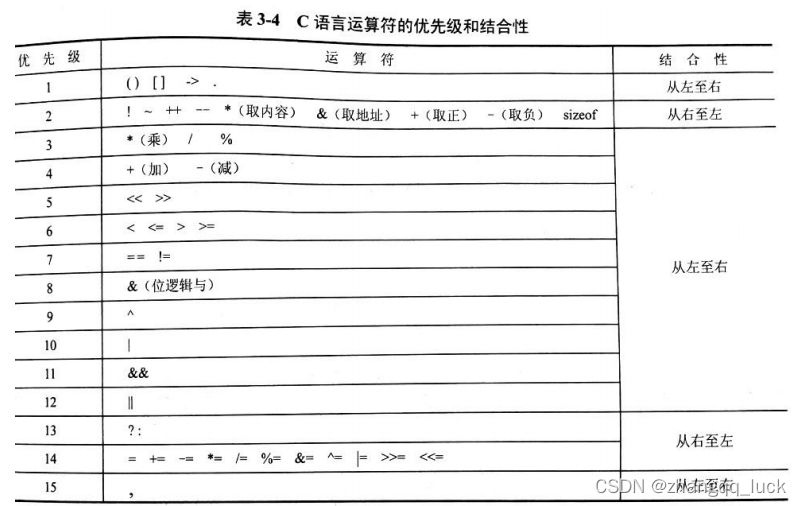 表 3-4 C 语言运算符的优先级和结合性
优 先 级 运 算 符 结 合 性
1 () [] -> . 从左至右
2 ! ~ ++ -- *（取内容） &（取地址） +（取正） -（取负） sizeof 从右至左
3 *（乘） / %
4 +（加） -（减）
5 << >>
6 < <= > >=
7 == != 从左至右
8 &（位逻辑与）
9 ^
10 |
11 &&
12 ||
13 ?: 从右至左
14 = += -= *= /= %= &= ^= |= >>= <<=
15 , 从左至右
CSDN @zhangqq_luck